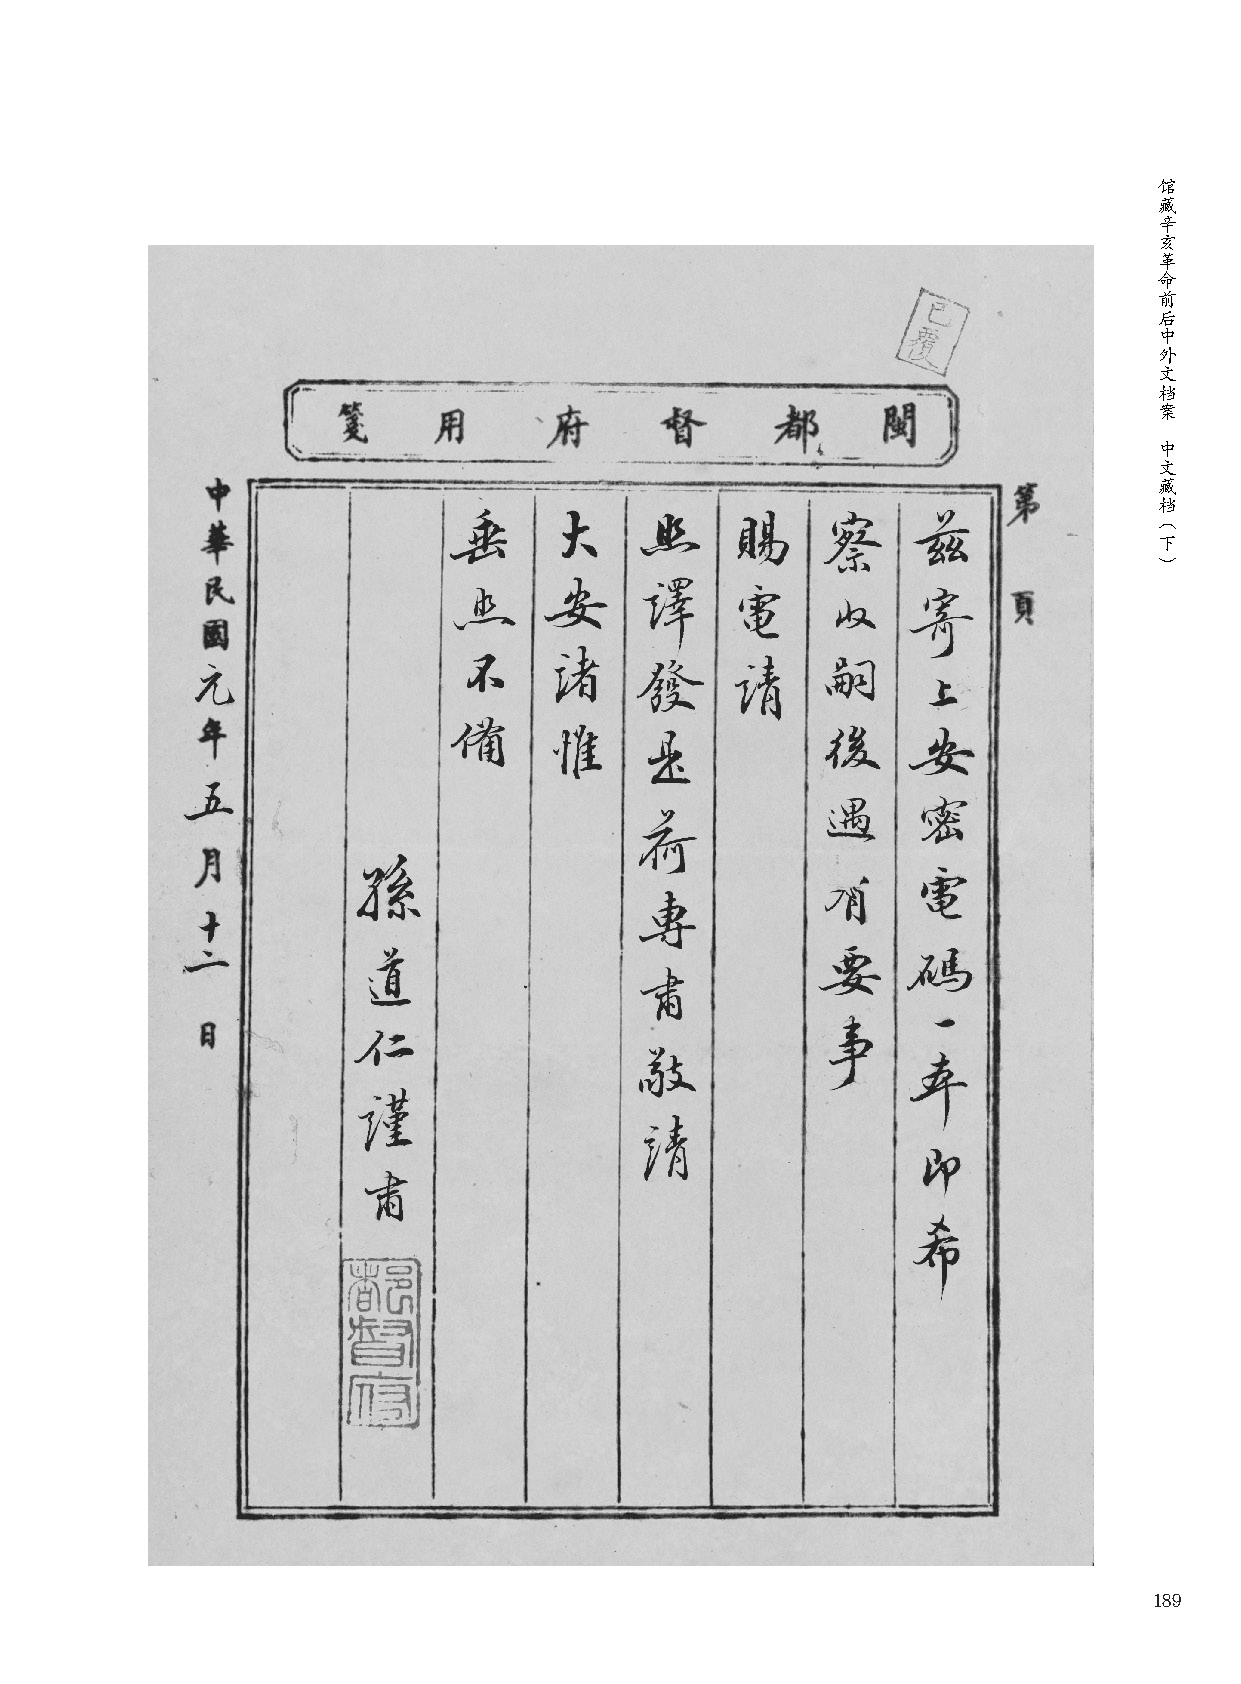 馆藏辛亥革命前后中外文档案 中文藏档（下）
已覆
閩都督府用箋
第 頁
茲寄上安密電碼一本即希
察收嗣後遇有要事
賜電請
照譯發是荷專肅敬請
大安諸惟
垂照不備
孫道仁謹肅
都督府
中華民國元年五月十二日
189